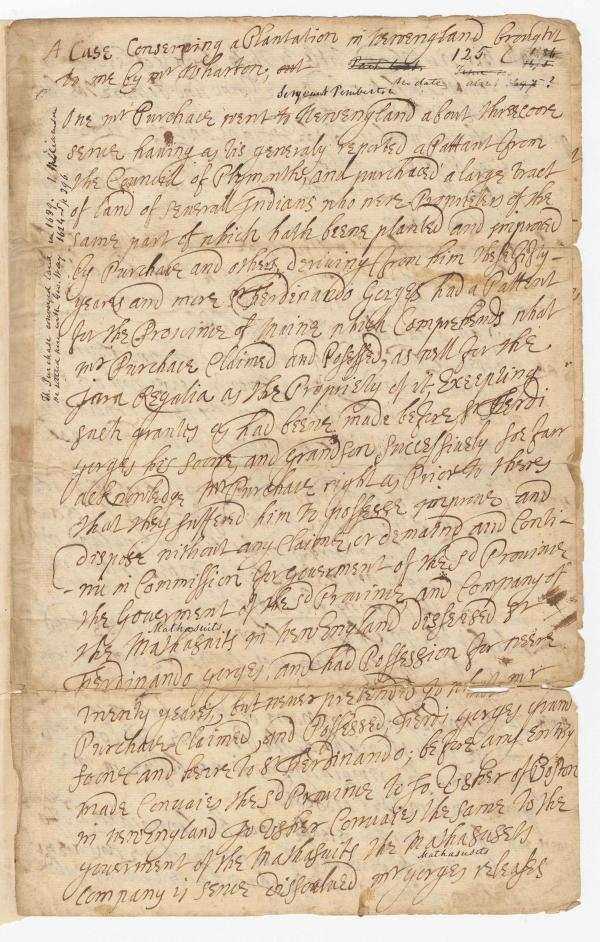 A Case Conserning a Plantation in Newengland brought
to me by mr Wharton, out
125
No date
Sergeant Pemberton
One mr Purchace went to Newengland about threescore
sence having as tis generaly reported a Pattant from
the Councill of Plymouth, and purchaced a large tract
of land of severall Indians who were Proprieters of the
same part of which hath beene planted and improved
by Purchace and others deriving from him these fifty
yeares and more Sr Ferdinando Gorges had a Pattent
for the Province of Maine which Comprehends what
mr Purchace Claimed and Possesed, as well for the
Jura Regalia as the Propriety of it Excepting
such grantes as had beene made before Sr Ferdi
gorges his sonne, and grandson successively soe farr
acknowledge Mr Purchace right as Prior to theres
that they suffered him to possesse improve and
dispose without any Claime, or demand and Conti-
-nu in Commission for goverment of the sd Province
the Goverment of the sd Province and Company of
Mathasuits
the Mathasuits in New England disseased Sr
Ferdinando gorges, and had Possession for neere
twenty yeares, but never pretended to what mr
Purchace Claimed, and Possessed, Ferdi gorges grand
sone and heire to Sr Ferdinando; before any Entry
made Convaies the sd Province to Jo. Usher of Boston
in New England Jo. Usher Convaies the same to the
goverment of the Mathasuits the Mathasusets
Mathasusets
Company is sence dissolved mr gorges releases
Th. Purchase conveyed land in 1639.